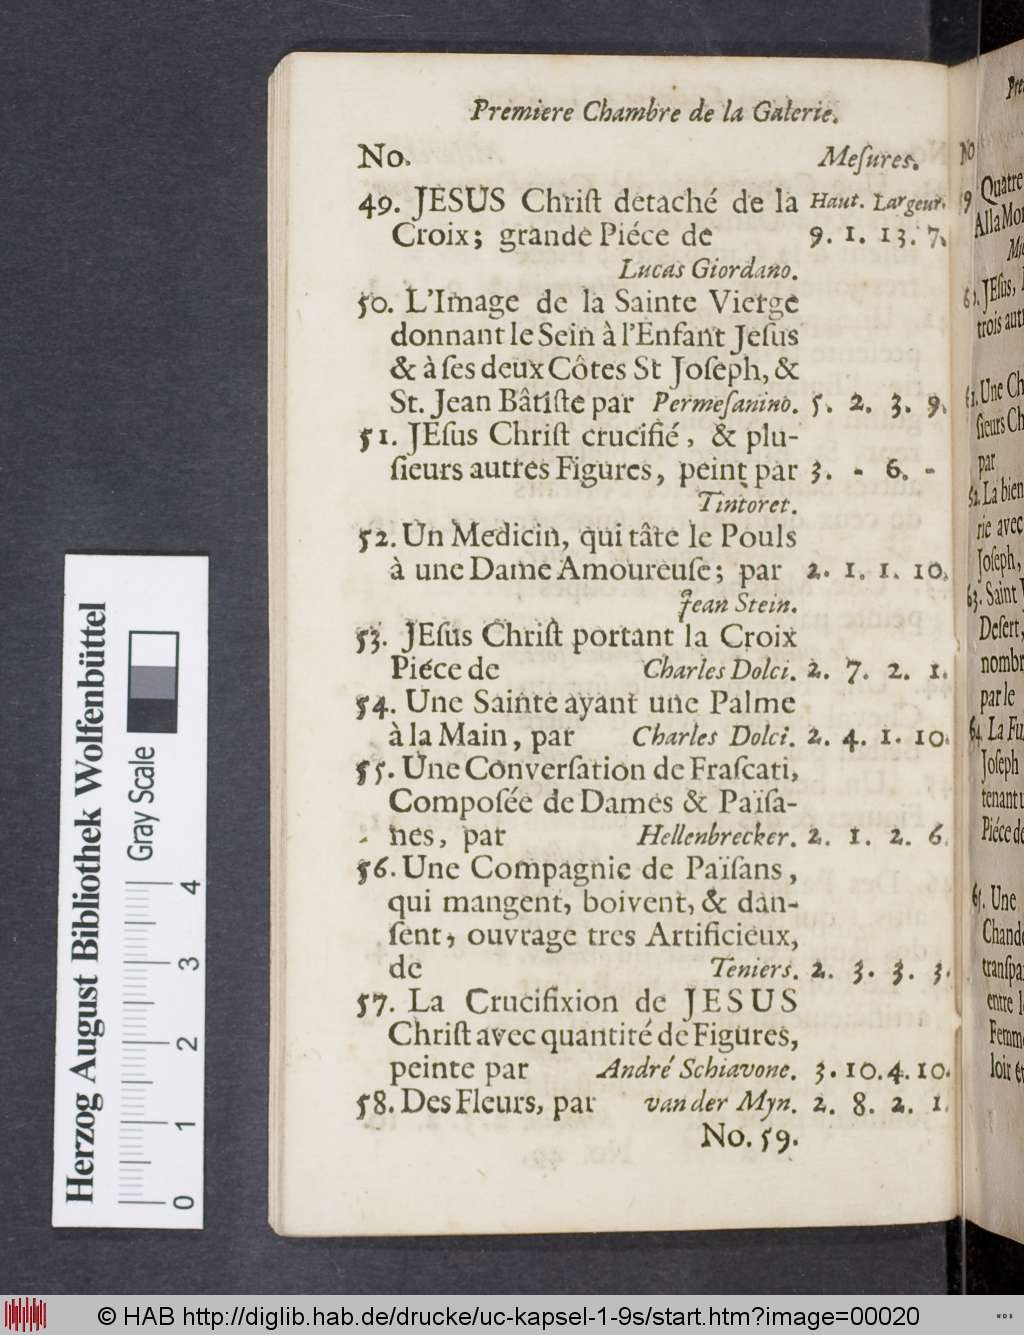 Premiere Chambre de la Galerie.
No. Meſures.
49. JESUS Chriſt detaché de la Haut. Largeur.
Croix; grande Piéce de 9. 1. 13. 7.
Lucas Giordano.
50. L'Image de la Sainte Vierge
donnant le Sein à l'Enfant Jeſus
& à ſes deux Côtes St Joſeph, &
St. Jean Bâtiſte par Permeſanino. 5. 2. 3. 9.
51. JEſus Chriſt crucifié, & plu-
ſieurs autres Figures, peint par 3. - 6. -
Tintoret.
52. Un Medicin, qui tâte le Pouls
à une Dame Amoureuſe; par 2. 1. 1. 10.
Jean Stein.
53. JEſus Chriſt portant la Croix
Piéce de Charles Dolci. 2. 7. 2. 1.
54. Une Sainte ayant une Palme
à la Main, par Charles Dolci. 2. 4. 1. 10.
55. Une Converſation de Fraſcati,
Compoſée de Dames & Païſa-
nes, par Hellenbrecker. 2. 1. 2. 6.
56. Une Compagnie de Païſans,
qui mangent, boivent, & dan-
ſent, ouvrage tres Artificieux,
de Teniers. 2. 3. 3. 3.
57. La Crucifixion de JESUS
Chriſt avec quantité de Figures,
peinte par André Schiavone. 3. 10. 4. 10.
58. Des Fleurs, par van der Myn. 2. 8. 2. 1.
No. 59.
No
Quatre
Alla
61. JEſus,
trois
Une
ſieurs
par
La bien
rie avec
Joſeph,
63. Saint
Deſert,
nombr
par le
64. La
Joſeph
tenant
Piéce de
65. Une
Chand
tranſpa
entre
Femm
loit
Herzog August Bibliothek Wolfenbüttel
Gray Scale
0 1 2 3 4
© HAB http://diglib.hab.de/drucke/uc-kapsel-1-9s/start.htm?image=00020